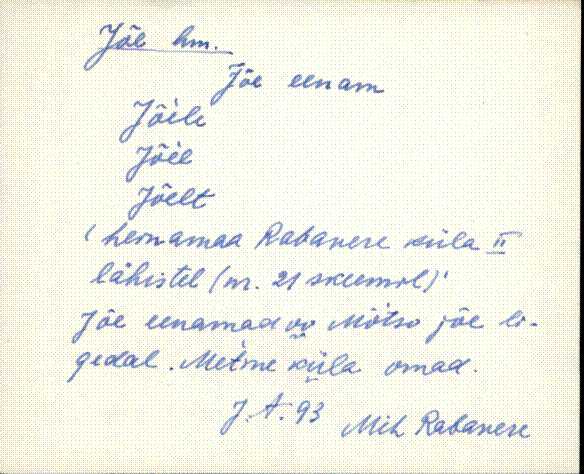 Jõe hm.
Jõe eenam
Jõèle
Jõèl
Jõelt
‘heinamaa Rabavere küla II
lähistel (nr. 21 skeemil)’
Jõe eenamad oo Mõtso jõe li-
gedal. Metsne küla omad.
J. A. 93 Mih Rabavere